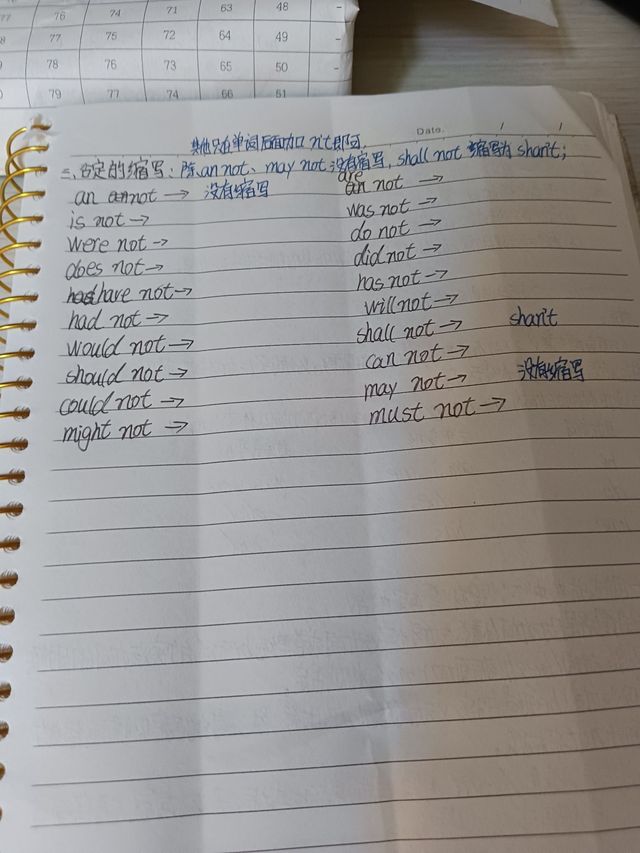 77 76 74 71 63 48 -
8 77 75 72 64 49 -
9 78 76 73 65 50 -
79 77 74 66 51 -
Date. / /
其他只在单词后面加 n't 即可.
三、否定的缩写：除 an not、may not 没有缩写, shall not 缩写为 shan't;
an not → 没有缩写
are not →
is not →
was not →
were not →
do not →
does not →
did not →
have not →
has not →
had not →
will not →
would not →
shall not → shan't
should not →
can not →
could not →
may not → 没有缩写
might not →
must not →